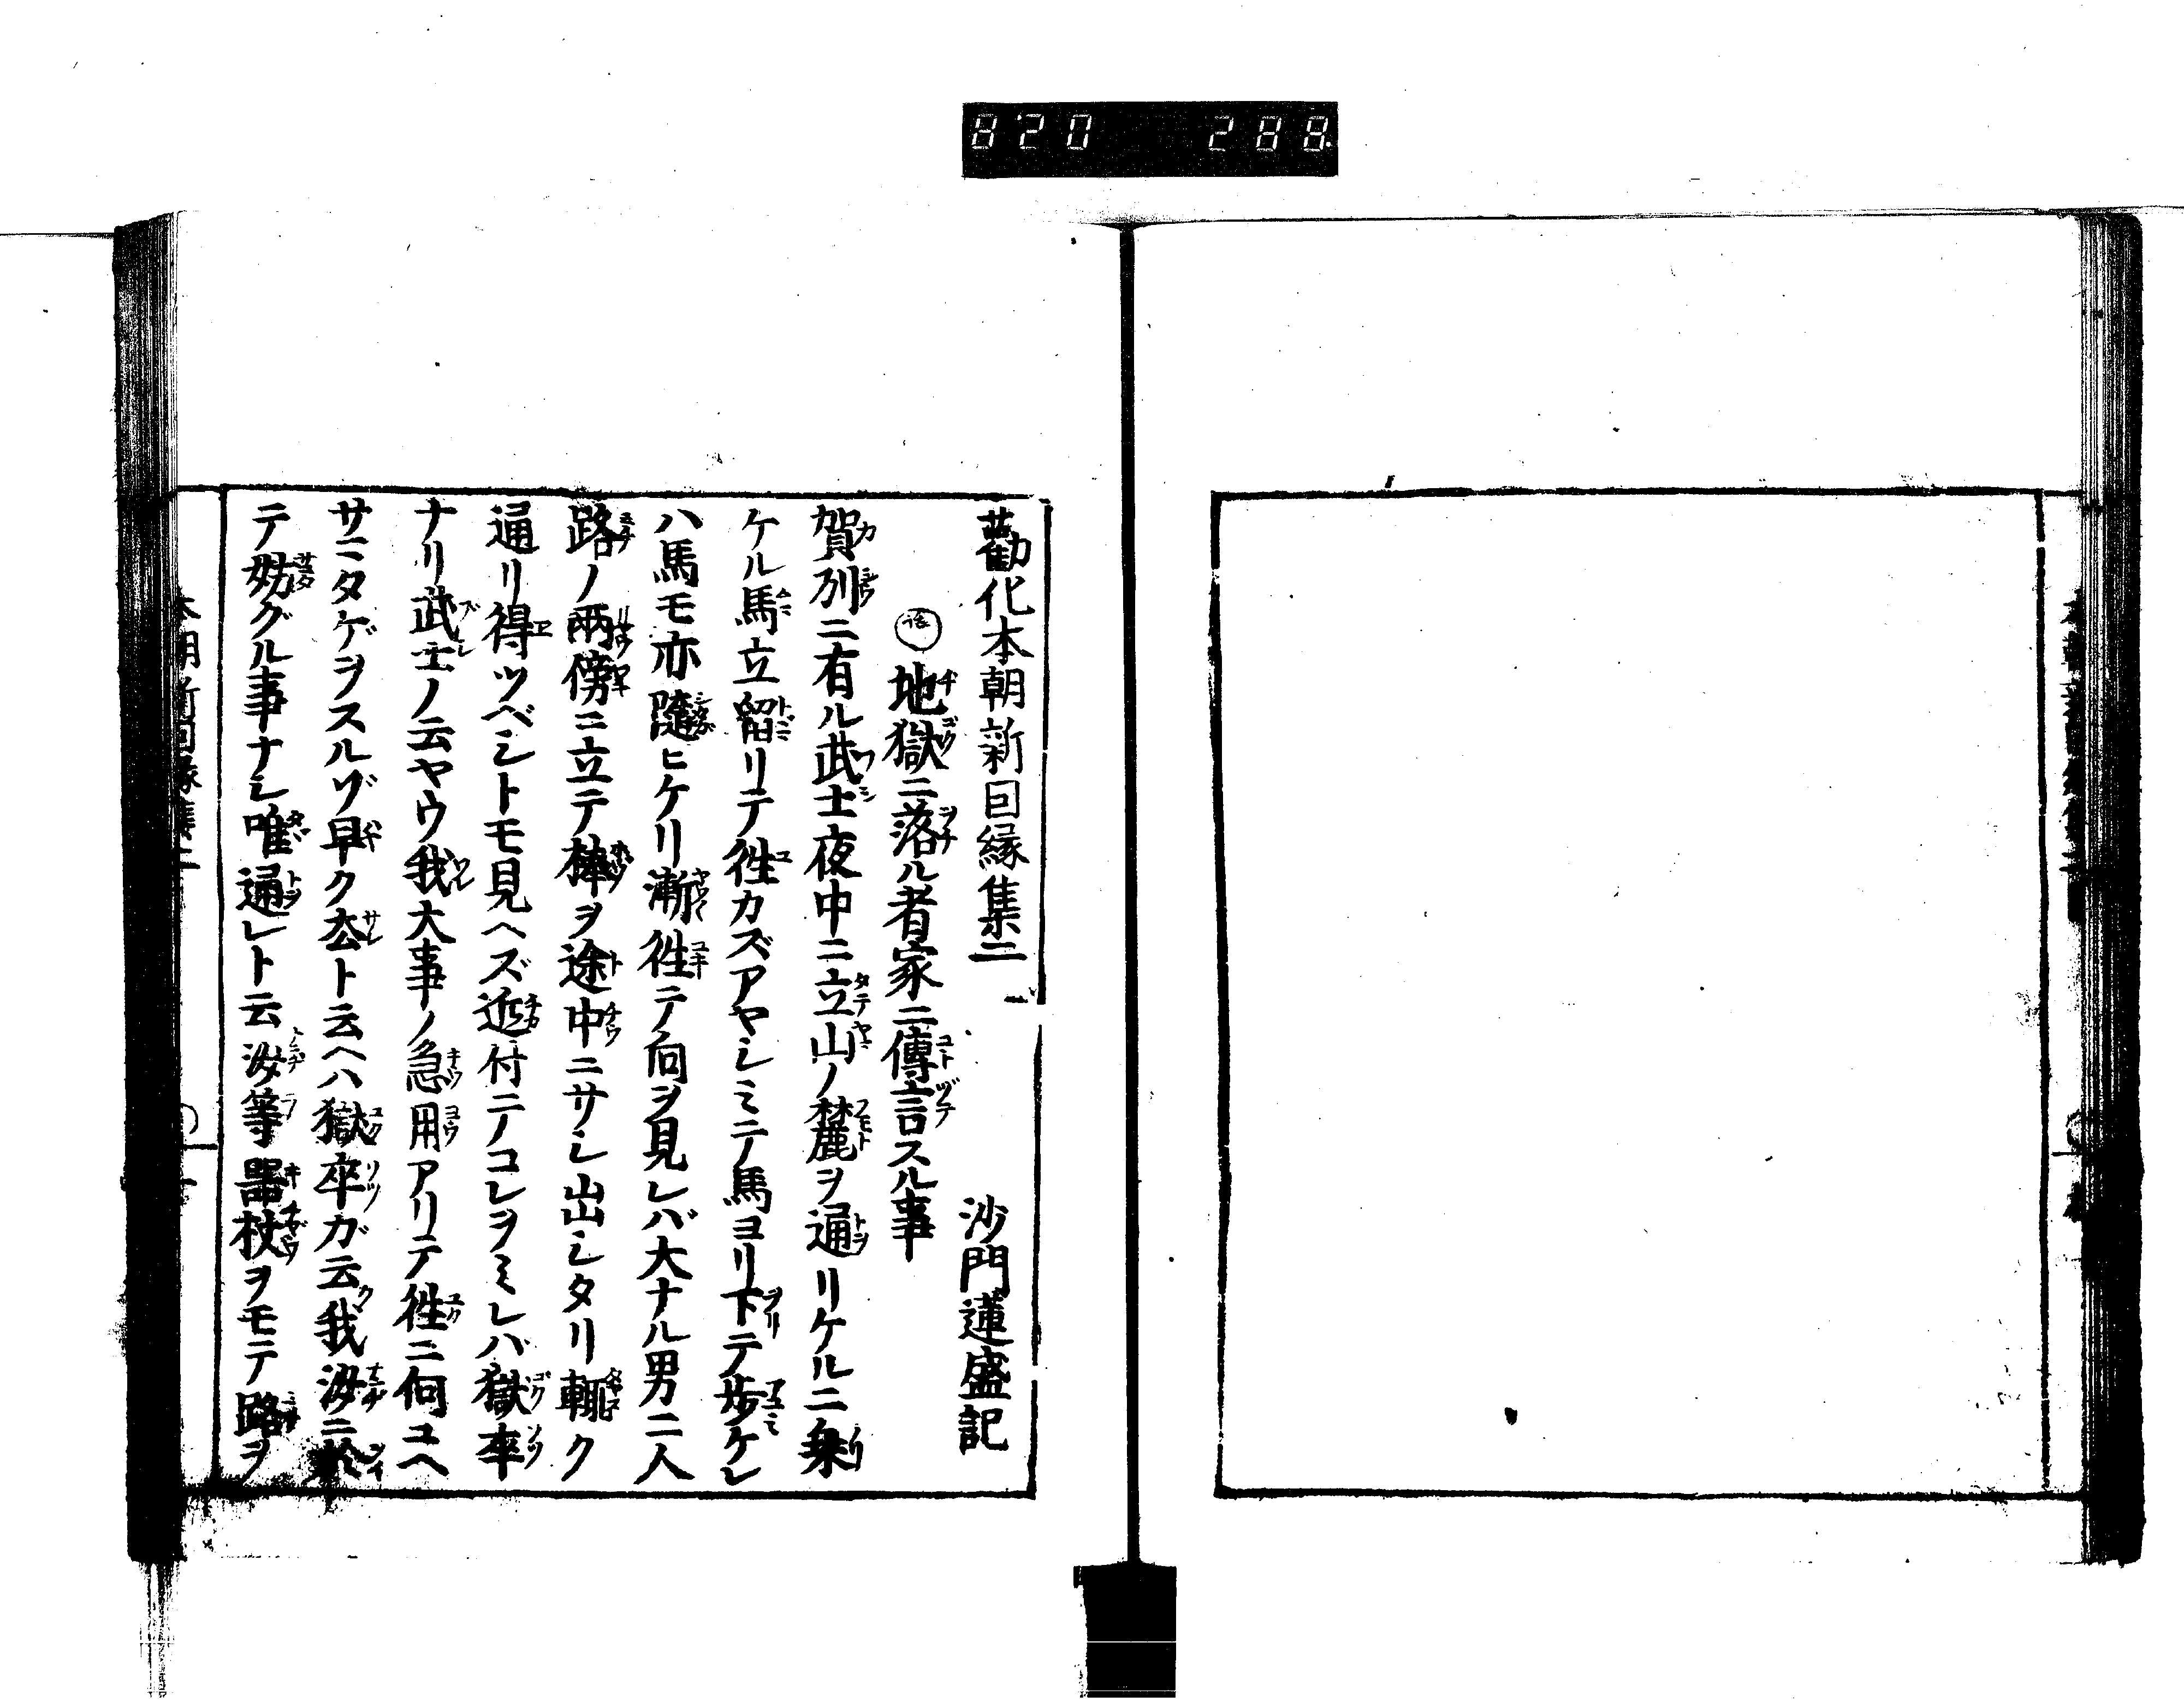 820 288
勸化本朝新因縁集二
沙門蓮盛記
地獄ニ落ル者家ニ傳言スル事
賀州ニ有ル武士夜中ニ立山ノ麓ヲ通リケルニ乗
ケル馬立留リテ徃カズアヤシミテ馬ヨリ下テ歩ケレ
ハ馬モ亦隨ヒケリ漸徃テ向ヲ見レバ大ナル男二人
路ノ兩傍ニ立テ棒ヲ途中ニサシ出シタリ輙ク
通リ得ツベシトモ見ヘズ近付テコレヲミレバ獄卒
ナリ武士ノ云ヤウ我大事ノ急用アリテ徃ニ何ユヘ
サマタゲヲスルゾ早ク去ト云ヘハ獄卒ガ云我汝ニ於
テ妨グル事ナシ唯通レト云汝等器杖ヲモテ路ヲ